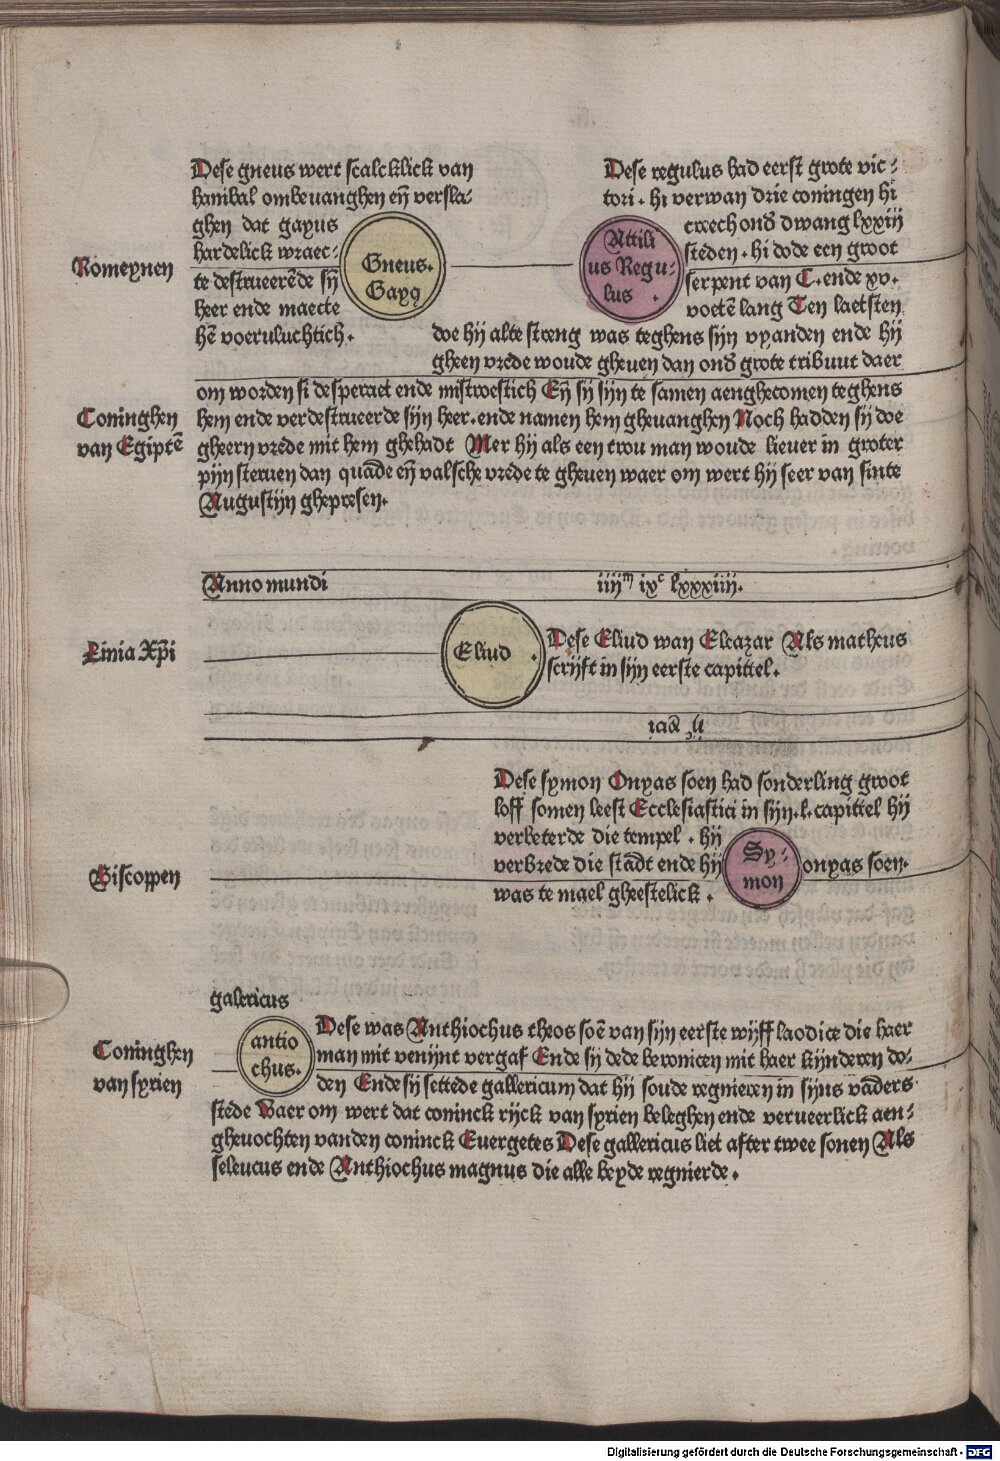 Dese gneus wert scalcklick van
hanibal ombeuanghen eñ versla-
ghen dat gayus
hardelick wraec-
te destrueerēde sÿ
heer ende maecte
hē voeruluchtich.
Romeynen
Gneus.
Gayꝯ
Dese regulus had eerst grote vic-
tori. hi verwan drie coningen hi
creech onđ dwang lxxiij
steden. hi dode een groot
serpent van C. ende xv.
voetē lang Ten laetsten
Attili
us Regu-
lus.
doe hij alte streng was teghens sijn vyanden ende hij
gheen vrede woude gheuen dan onđ grote tribuut daer
om worden si desperaet ende mistroestich Eñ sy sijn te samen aenghecomen teghens
hem ende verdestrueerde sijn heer. ende namen hem gheuanghen Noch hadden sy doe
gheern vrede mit hem ghehadt Mer hij als een trou man woude lieuer in groter
pijn steruen dan quāde eñ valsche vrede te gheuen waer om wert hij seer van sinte
Augustijn ghepresen.
Coninghen
van Egiptē
Anno mundi iiijᵐ ixᶜ lxxxiiij.
Linia Xp̄i
Eliud.
Dese Eliud wan Eleazar Als matheus
scrijft in sijn eerste capittel.
Dese symon Onyas soen had sonderling groot
loff somen leest Ecclesiastici in sijn. l. capittel hij
verbeterde die tempel. hij
verbrede die stādt ende hij
was te mael gheestelick.
Sy-
mon
onyas soen.
Biscoppen
galericus
antio
chus.
Coninghen
van syrien
Dese was Anthiochus theos soē van sijn eerste wijff laodice die haer
man mit venijnt vergaf Ende sy dede beronicen mit haer kijnderen do-
den Ende sy settede gallericum dat hij soude regnieren in sijns vāders
stede Waer om wert dat coninck rijck van syrien beleghen ende verueerlick aen-
gheuochten vanden coninck Euergetes Dese gallericus liet after twee sonen Als
seleucus ende Anthiochus magnus die alle beyde regnierde.
Digitalisierung gefördert durch die Deutsche Forschungsgemeinschaft - DFG